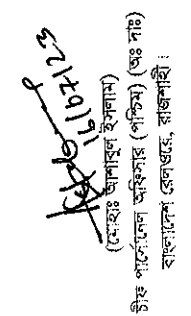 16/07/23
(মোহাঃ আশাবুল ইসলাম)
চীফ পার্সোনেল অফিসার (পশ্চিম) (অঃ দাঃ)
বাংলাদেশ রেলওয়ে, রাজশাহী।